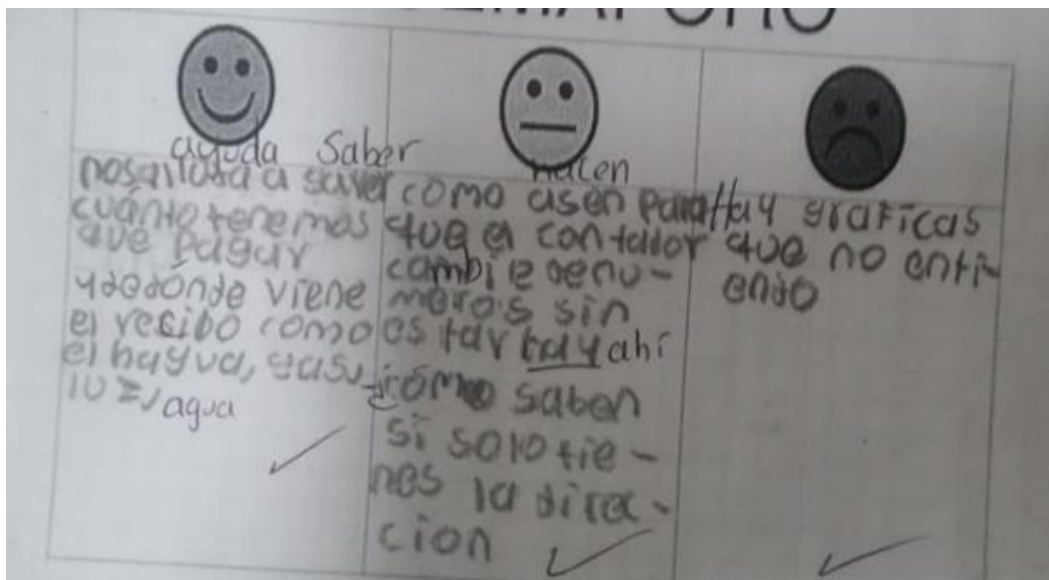 ayuda Saber
nos aiuda a saver
cuánto tenemos
que pagar
y de dónde viene
el recibo como
el hagua, gas,
luz, agua
hacen
como asen para
que el contador
cambie de nu-
meros sin
estar hay ahí
¿cómo saben
si solo tie-
nes la direc-
cion
Hay graficas
que no enti-
endo